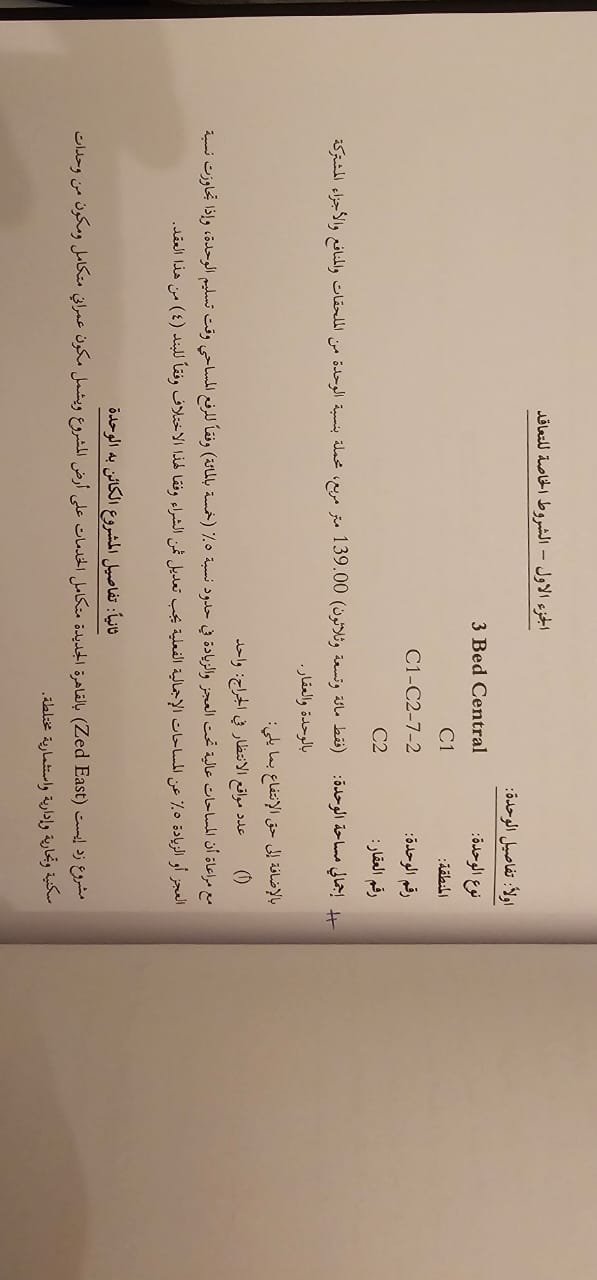 الجزء الاول – الشروط الخاصة للتعاقد
اولاً: تفاصيل الوحدة:
نوع الوحدة: 3 Bed Central
المنطقة: C1
رقم الوحدة: C1-C2-7-2
رقم العقار: C2
# إجمالي مساحة الوحدة: (فقط مائة وتسعة وثلاثون) 139.00 متر مربع، محملة بنسبة الوحدة من الملحقات والمنافع والأجزاء المشتركة
بالوحدة والعقار.
بالإضافة إلى حق الإنتفاع بما يلي:
(أ) عدد مواقع الانتظار في الجراج: واحد
مع مراعاة أن المساحات عالية تحت العجز والزيادة في حدود نسبة ٥٪ (خمسة بالمائة) وفقاً للرفع المساحي وقت تسليم الوحدة، وإذا تجاوزت نسبة
العجز أو الزيادة ٥٪ عن المساحات الإجمالية الفعلية يجب تعديل ثمن الشراء وفقا لهذا الاختلاف وفقاً للبند (٤) من هذا العقد.
ثانياً: تفاصيل المشروع الكائن به الوحدة
مشروع زد إيست (Zed East) بالقاهرة الجديدة متكامل الخدمات على أرض المشروع ويشمل مكون عمراني متكامل ومكون من وحدات
سكنية وتجارية وإدارية واستثمارية مختلطة.